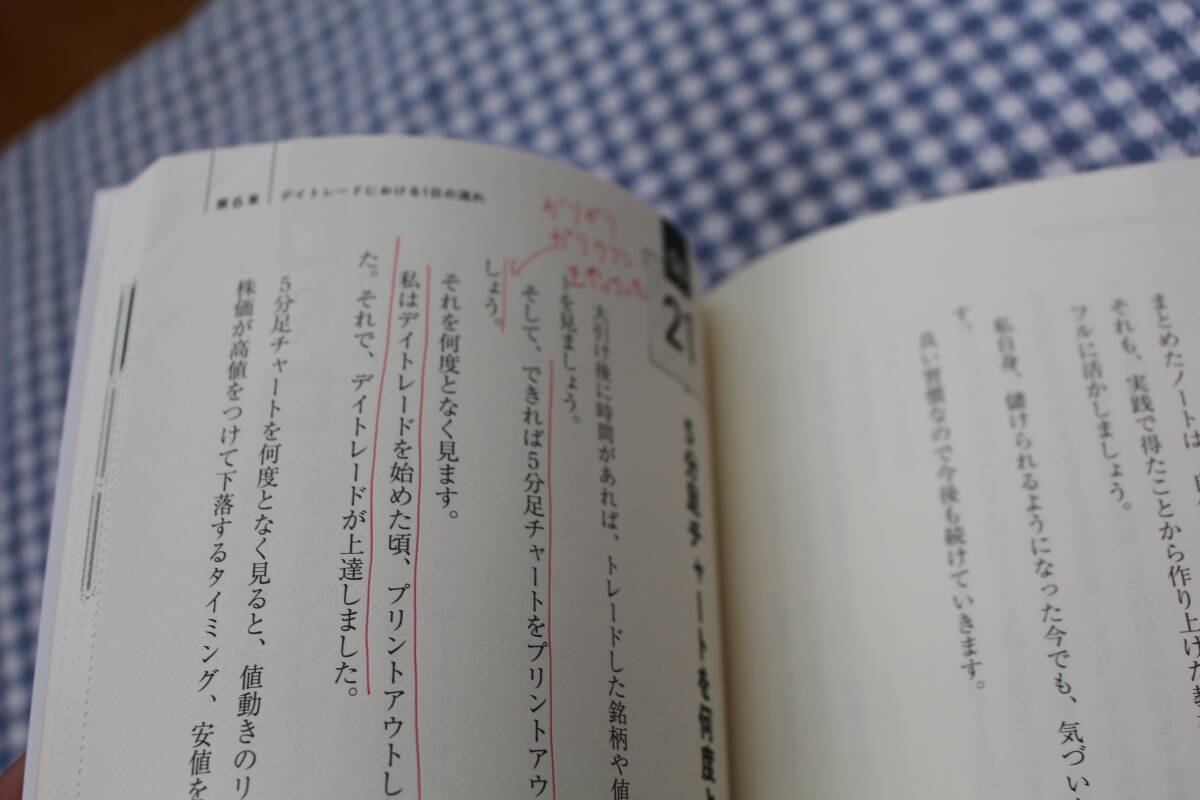 まとめたノートは、
それも、実践で得たことから作り上げた
フルに活かしましょう。
私自身、儲けられるようになった今でも、気づい
す。
良い習慣なので今後も続けていきます。
21
5分足チャートを何度
大引け後に時間があれば、トレードした銘柄や値
トを見ましょう。
そして、できれば5分足チャートをプリントアウ
しょう。
それを何度となく見ます。
私はデイトレードを始めた頃、プリントアウトし
た。それで、デイトレードが上達しました。
5分足チャートを何度となく見ると、値動きのリ
株価が高値をつけて下落するタイミング、安値を
第6章 デイトレードにおける1日の流れ